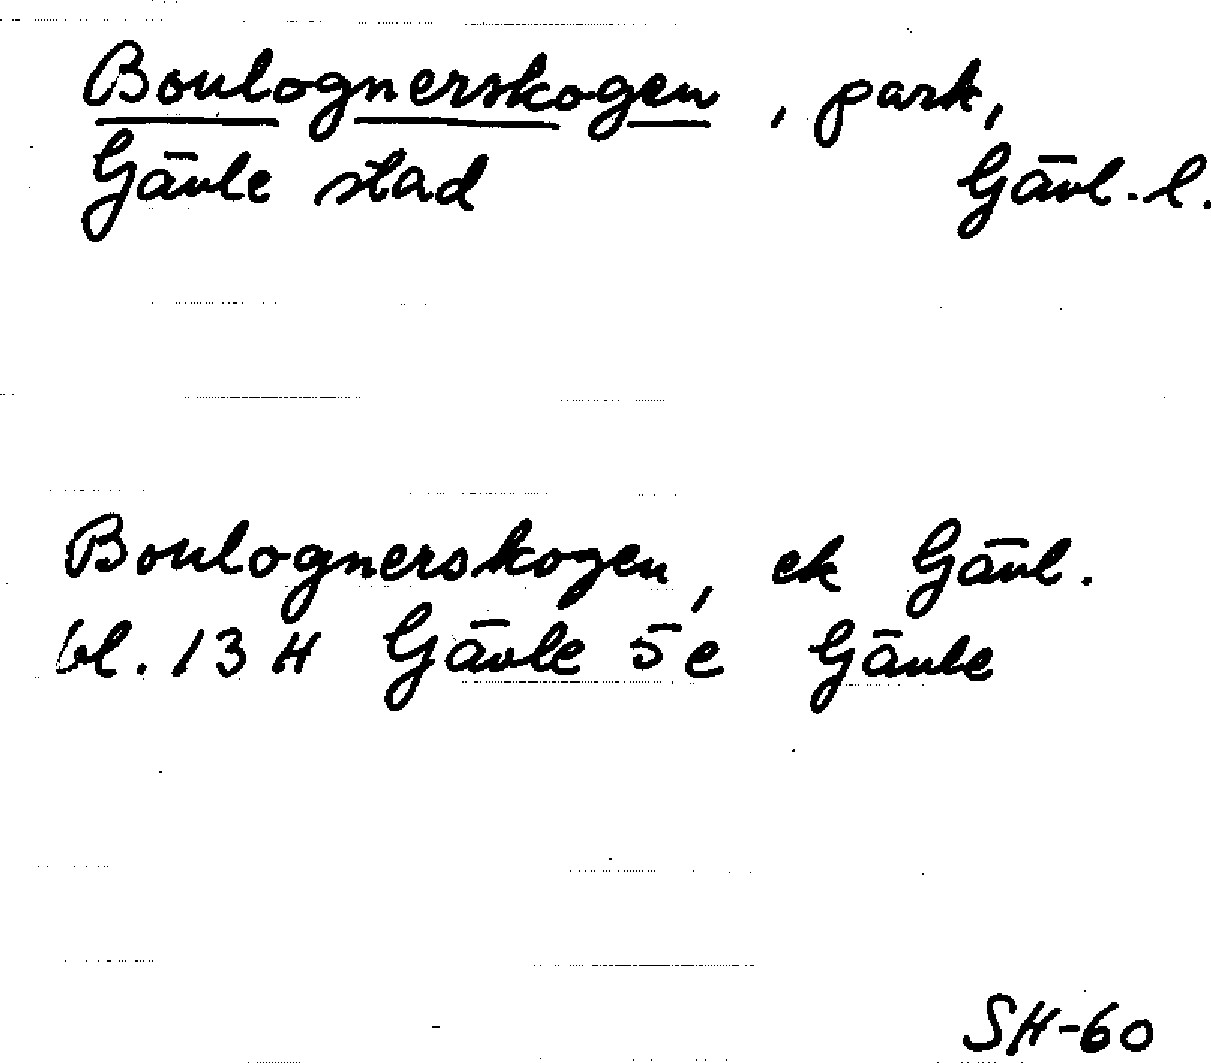 Boulognerskogen, park,
Gävle stad Gävl. l.
Boulognerskogen, ek Gävl.
bl. 13 H Gävle 5 e Gävle
SH-60